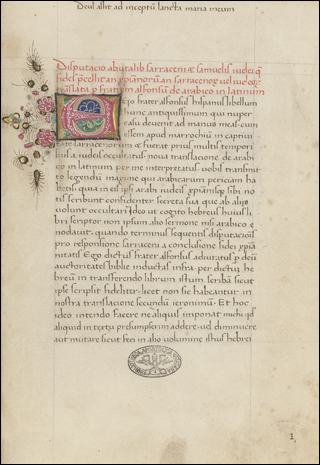 Deus assit ad inceptum sancta maria meum
Disputacio abutalib sarraceni & samuelis iudei q̄
fides p̄cellit an xp̄ianorū an sarracenorū vel iudeoꝝ
translata p̄ fratrem alfonsum de arabico in latinum
Ego frater alfonsus hispanus libellum
hunc antiquissimum qui nuper
devenit ad manus meas cum
essem apud marrochiū in captivi
tate sarracenorum & fuerat prius multis tempori
bus a iudeis occultatus nova translacione de arabi
co in latinum per me interpretatū vobis transmit
to legendū
quia in ipsis arabi iudei
tis scribunt confidenter secreta sua que ab aliis
volunt occultari Ideo ut cogito hebreus huius li
bri scriptor non ipsum alio sermone nisi arabico
quando terminus sequentis disputacionis
pro responsione sarraceni a conclusione fidei xp̄ia
nitatis Ego dictus frater alfonsus adiuvatus p̄ deū
auctoritates biblie inductas infra per dictū he
breū in transferendo librum istum scribā sicut
ipse scripsit fideliter licet non sic habeantur in
nostra translacione secundū ieronimū Et hoc
ideo intendo facere ne aliquis imponat michi
aliquid in textu presumpserim addere vel diminuere
aut mutare sicut feci in alio volumine istius hebrei
1